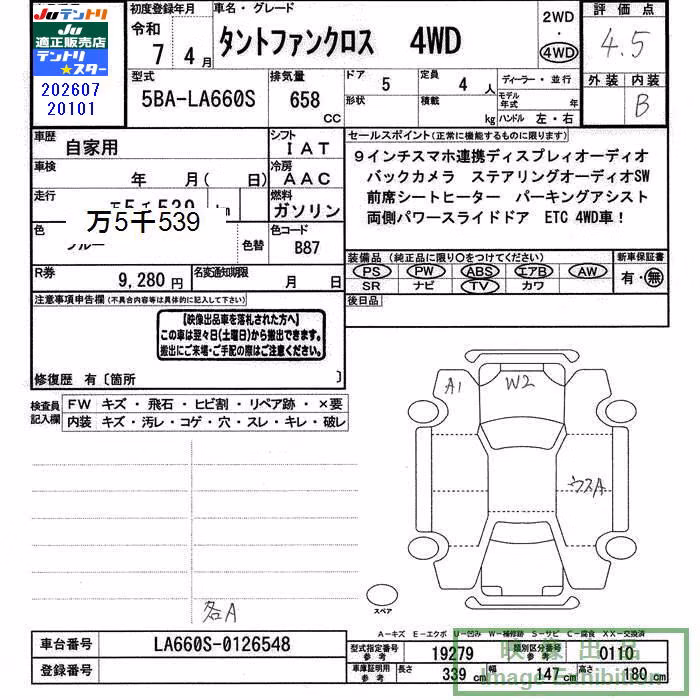 Juテントリ
Ju
適正販売店
テントリ
★スター
202607
20101
初度登録年月
令和
7年 4月
車名・グレード
タントファンクロス 4WD
2WD
・
4WD
評価点
4.5
外装 内装
B
型式
5BA-LA660S
排気量
658
CC
ドア
5
形状
定員
4人
積載
kg
ディーラー・並行
モデル年式 年
ハンドル 左・右
車歴
自家用
シフト
IAT
車検
年 月( 日)
冷房
AAC
走行
万5千539
燃料
ガソリン
色
ブルー
色替
色コード
B87
R券
9,280円
名変通知期限
月 日
セールスポイント(正常に機能するものに限ります)
9インチスマホ連携ディスプレィオーディオ
バックカメラ ステアリングオーディオSW
前席シートヒーター パーキングアシスト
両側パワースライドドア ETC 4WD車!
装備品(純正品に限り○をつけてください)
PS PW ABS エアB AW
SR ナビ TV カワ
新車保証書
有・無
後日品
注意事項申告欄(不具合内容等は具体的に記入して下さい)
【映像出品車を落札された方へ】
この車は翌々日(土曜日)から搬出できます。
搬出にご来場・ご手配の際はご注意ください。
修復歴 有〔箇所 〕
検査員
記入欄
FW キズ・飛石・ヒビ割・リペア跡・×要
内装 キズ・汚レ・コゲ・穴・スレ・キレ・破レ
A1
W2
ウスA
スペア
各A
A-キズ E-エクボ U-凹み W-補修跡 S-サビ C-腐食 XX-交換済
車台番号
LA660S-0126548
登録番号
型式指定番号
参考
19279
類別区分番号
参考
0110
車庫証明用
参考
長さ 339cm 幅 147cm 高さ 180cm
映像出品
Image Exhibition